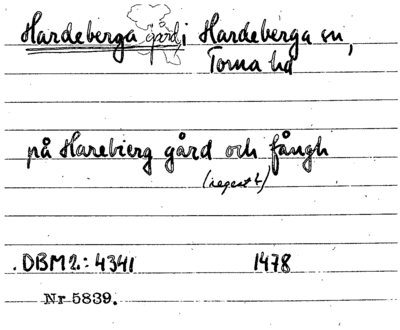 Hardeberga gård i Hardeberga sn,
Torna hd
på Harebierg gård och fångh
(regest)
DBM 2.: 4341 1478
Nr 5839.